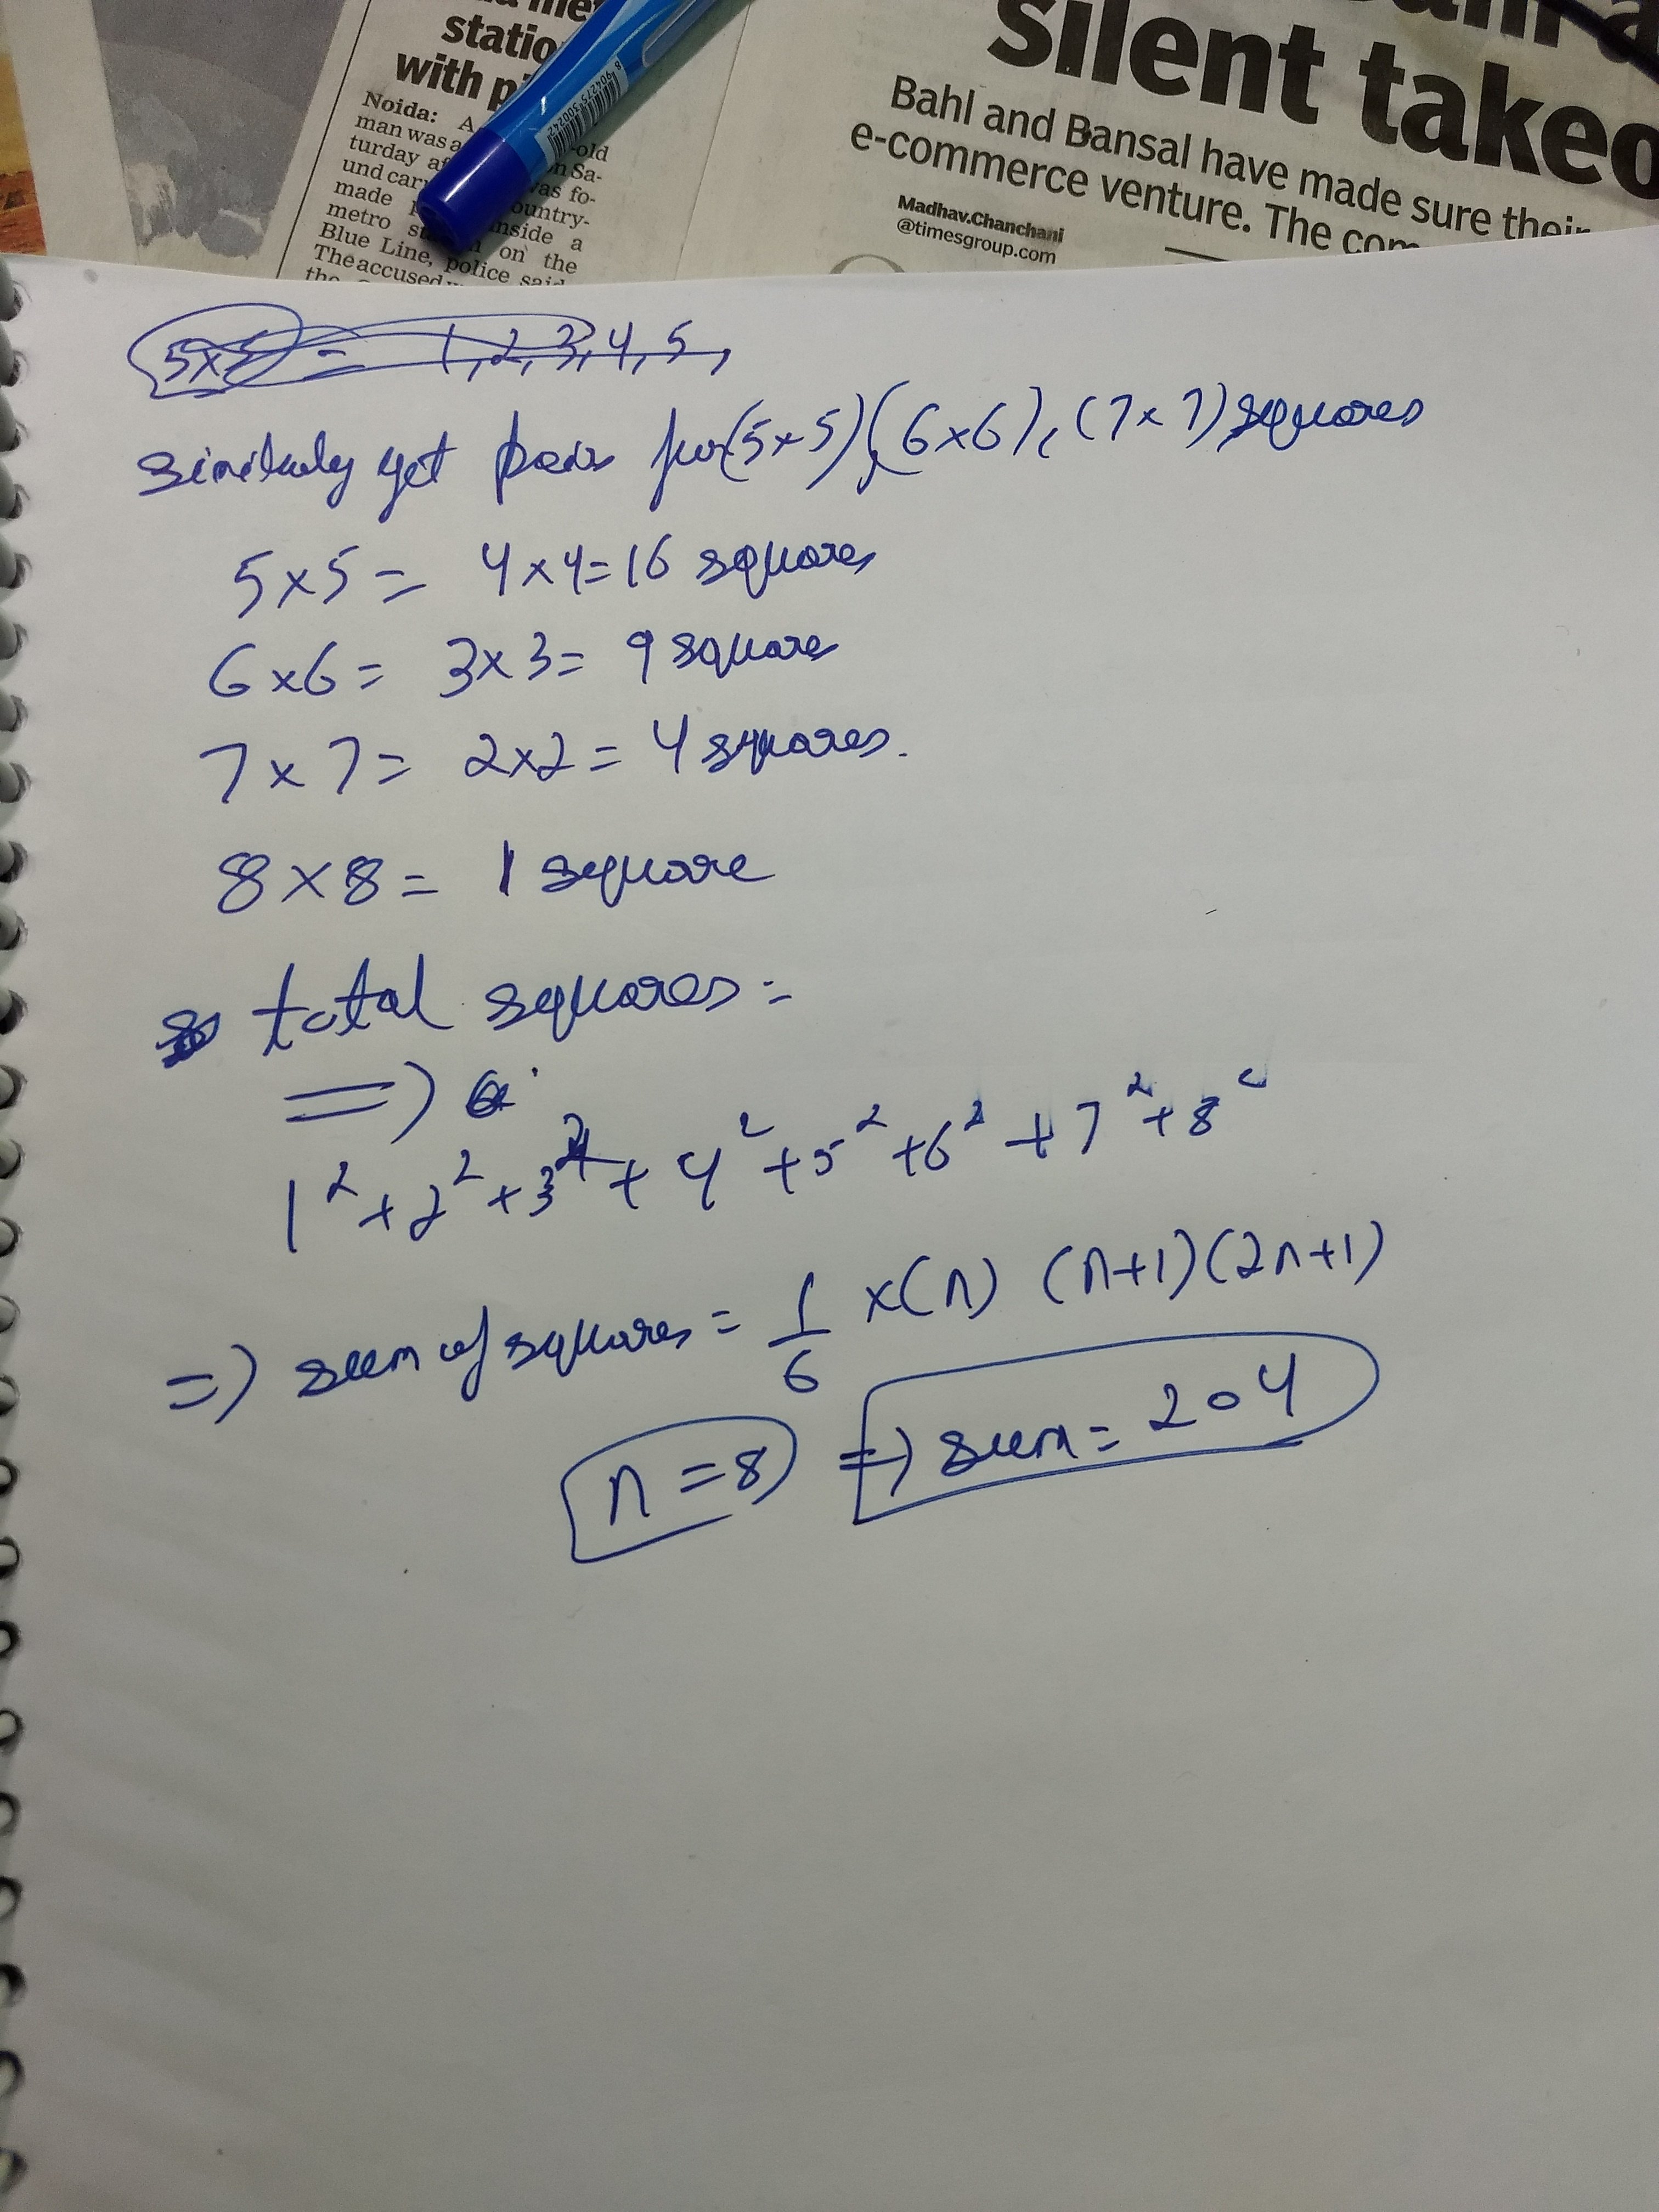 statio
with p
Noida: A
man was a -old
turday af n Sa-
und carr was fo-
made ountry-
metro st inside a
Blue Line, on the
The accused police said
silent takeo
Bahl and Bansal have made sure their
e-commerce venture. The com
Madhav.Chanchani
@timesgroup.com
5x5 = 1, 2, 3, 4, 5,
similarly get pairs for (5x5), (6x6), (7x7) squares
5x5 = 4x4=16 squares
6x6= 3x3= 9 squares
7x7= 2x2= 4 squares.
8x8= 1 square
total squares=
=>
1² + 2² + 3² + 4² + 5² + 6² + 7² + 8²
=> sum of squares = 1/6 x(n) (n+1)(2n+1)
n=8 => sum= 204